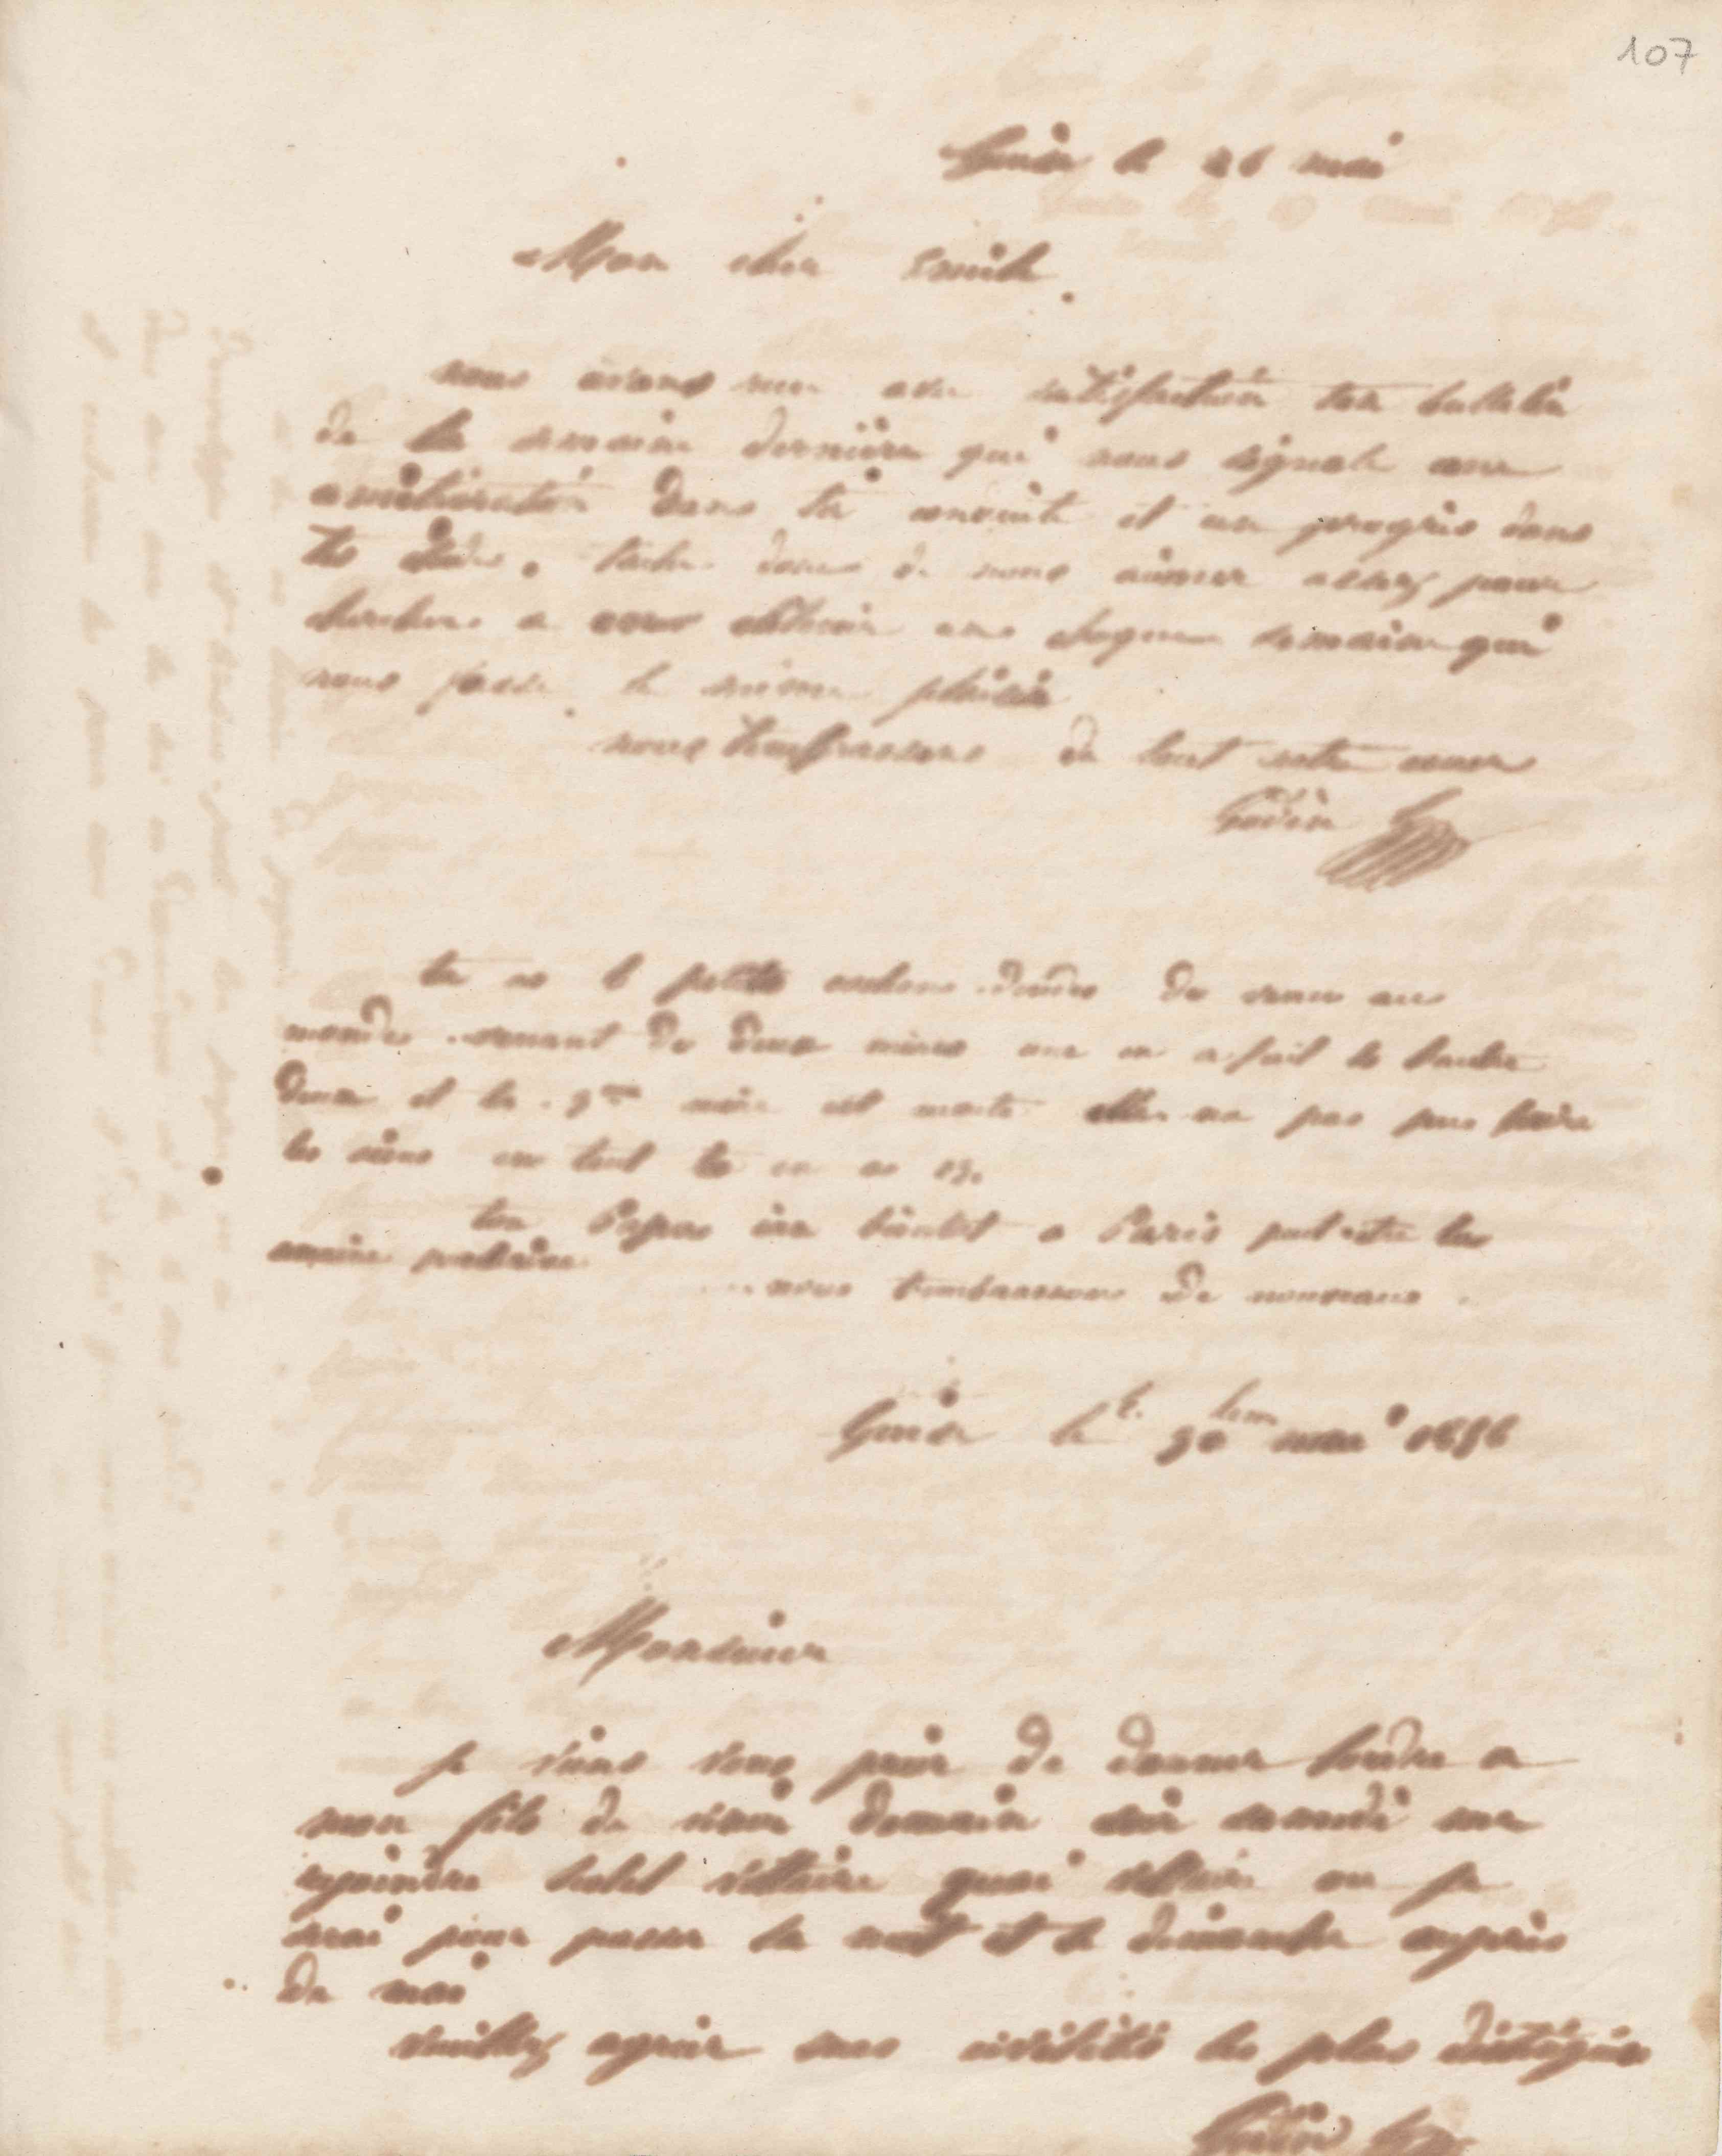 107
Guise le 26 mai
Mon cher Emile
nous avons reçu avec satisfaction ton bulletin
de la semaine dernière qui nous signale une
amélioration dans ta conduite et un progrès dans
tes études. tache donc de nous aimer assez pour
chercher a en obtenir un chaque semaine qui
nous fasse le même plaisir
nous t'embrassons de tout notre coeur
Godin
tu as 6 petits cochons dindes de venu au
monde venant de deux mères une en a fait
deux et la mère est morte elle na pas pu faire
les siens en tout tu en as
ton Papa ira bientot a Paris peut etre la
semaine prochaine
nous t'embrassons de nouveau
Guise le 30 mai 1856
Monsieur
je viens vous prier de donner lordre a
mon fils de venir demain samedi me
rejoindre hotel voltaire quai voltaire ou je
serai pour passer la nuit et le dimanche auprès
de moi
veuillez agréer mes civilités les plus distinguées
Godin